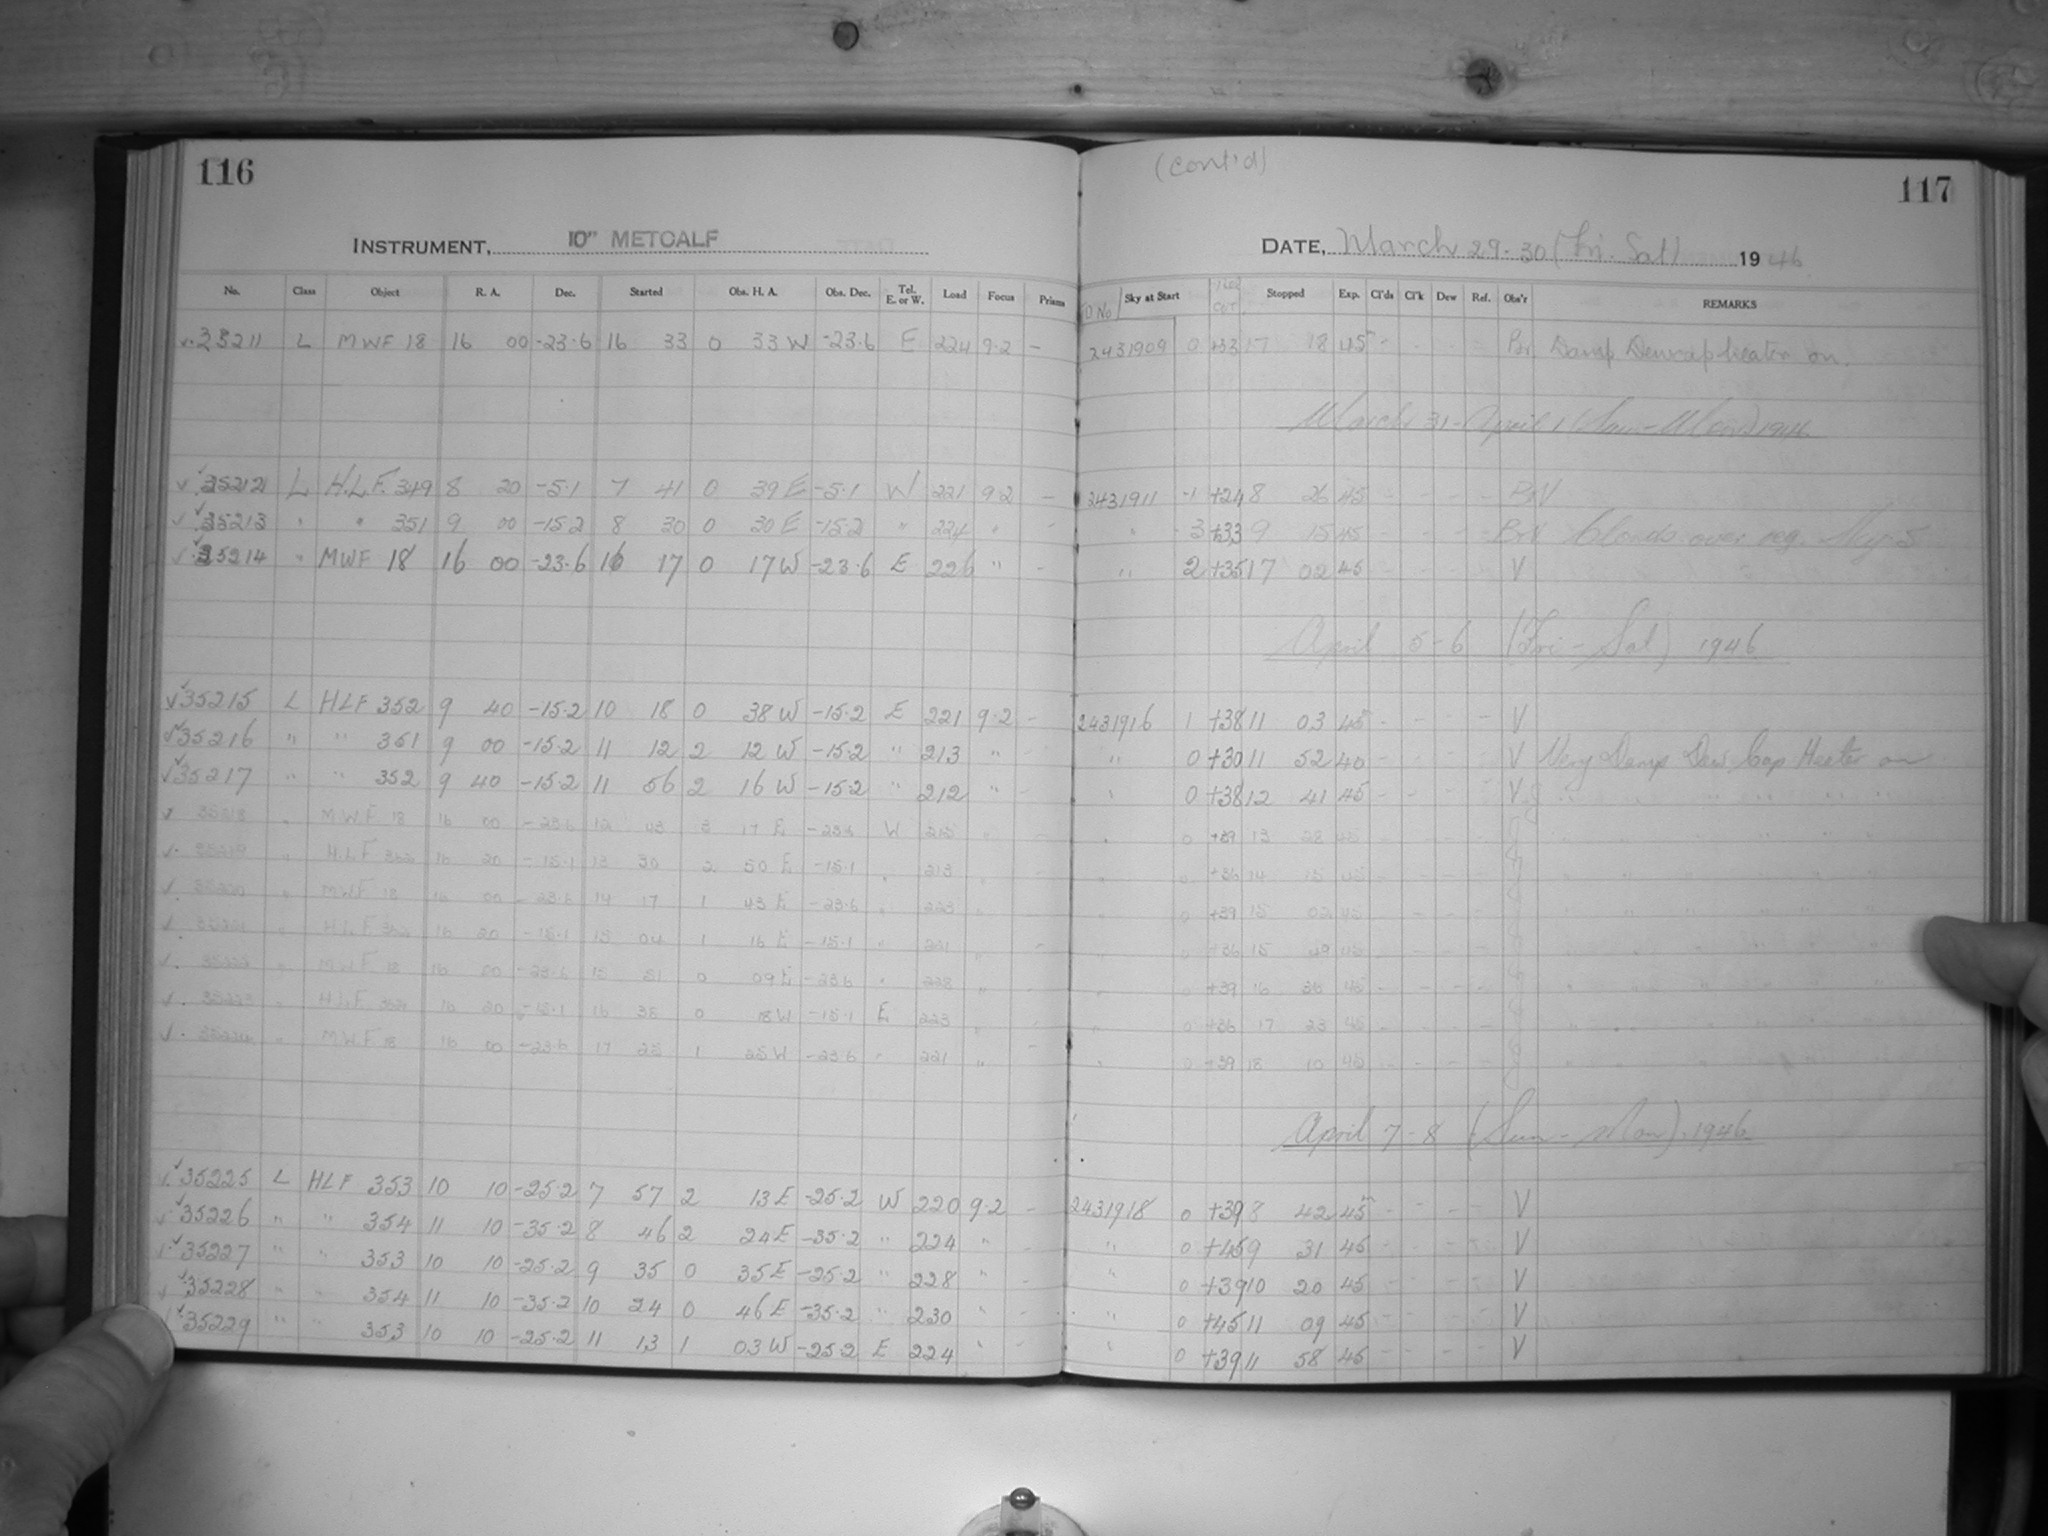 116
(Cont'd)
117
INSTRUMENT, 10" METCALF
DATE, March 29-30 (Fri. Sat) 1946
No. Class Object R. A. Dec. Started Obs. H. A. Obs. Dec. Tel. E. or W. Load Focus Prisms JD No Sky at Start Stopped Exp. Cl'ds Cl'k Dew Ref. Obs'r REMARKS
35211 L MWF 18 16 00 -23.6 16 33 0 33 W -23.6 E 224 9.2 - 2431909 0 +33 17 18 45 - Br Damp Dewcap heater on.
March 31 - April 1 (Sun-Mon) 1946
35212 L H.L.F. 349 8 20 -5.1 7 41 0 39 E -5.1 W 221 9.2 - 2431911 -1 +24 8 26 45 - - - - BrV
35213 " " 351 9 00 -15.2 8 30 0 30 E -15.2 " 224 " - " 3 +33 9 15 45 - - - - BrV Clouds over reg.
35214 " MWF 18 16 00 -23.6 16 17 0 17 W -23.6 E 226 " - " 2 +35 17 02 45 - - - - V
April 5-6 (Fri - Sat) 1946
35215 L HLF 352 9 40 -15.2 10 18 0 38 W -15.2 E 221 9.2 - 2431916 1 +38 11 03 45 - - - - V
35216 " " 351 9 00 -15.2 11 12 2 12 W -15.2 " 213 " - " 0 +30 11 52 40 - - - - V Very Damp Dew Cap Heater on
35217 " " 352 9 40 -15.2 11 56 2 16 W -15.2 " 212 " - " 0 +38 12 41 45 - - - - V " " " " "
35218 " MWF 18 16 00 -23.6 12 43 3 17 E -23.6 W 215 " - " 0 +39 13 28 45 - - - - " " " " "
35219 " H.L.F 16 20 -15.1 13 30 2 50 E -15.1 " 213 " - " 0 +36 14 15 45 - - - - " " " " "
35220 " MWF 18 16 00 -23.6 14 17 1 43 E -23.6 " 223 " - " 0 +39 15 02 45 - - - - " " " " "
35221 " H.L.F 16 20 -15.1 15 04 1 16 E -15.1 " 221 " - " 0 +36 15 49 45 - - - - " " " " "
35222 " MWF 18 16 00 -23.6 15 51 0 09 E -23.6 " 228 " - " 0 +39 16 36 45 - - - - " " " " "
35223 " H.L.F 16 20 -15.1 16 38 0 18 W -15.1 E 223 " - " 0 +36 17 23 45 - - - - " " " " "
35224 " M.W.F 18 16 00 -23.6 17 25 1 25 W -23.6 " 221 " - " 0 +39 18 10 45 - - - - " " " " "
April 7-8 (Sun - Mon). 1946
35225 L HLF 353 10 10 -25.2 7 57 2 13 E -25.2 W 220 9.2 - 2431918 0 +39 8 42 45 - - - - V
35226 " " 354 11 10 -35.2 8 46 2 24 E -35.2 " 224 " - " 0 +45 9 31 45 - - - - V
35227 " " 353 10 10 -25.2 9 35 0 35 E -25.2 " 228 " - " 0 +39 10 20 45 - - - - V
35228 " " 354 11 10 -35.2 10 24 0 46 E -35.2 " 230 " - " 0 +45 11 09 45 - - - - V
35229 " " 353 10 10 -25.2 11 13 1 03 W -25.2 E 224 " - " 0 +39 11 58 45 - - - - V